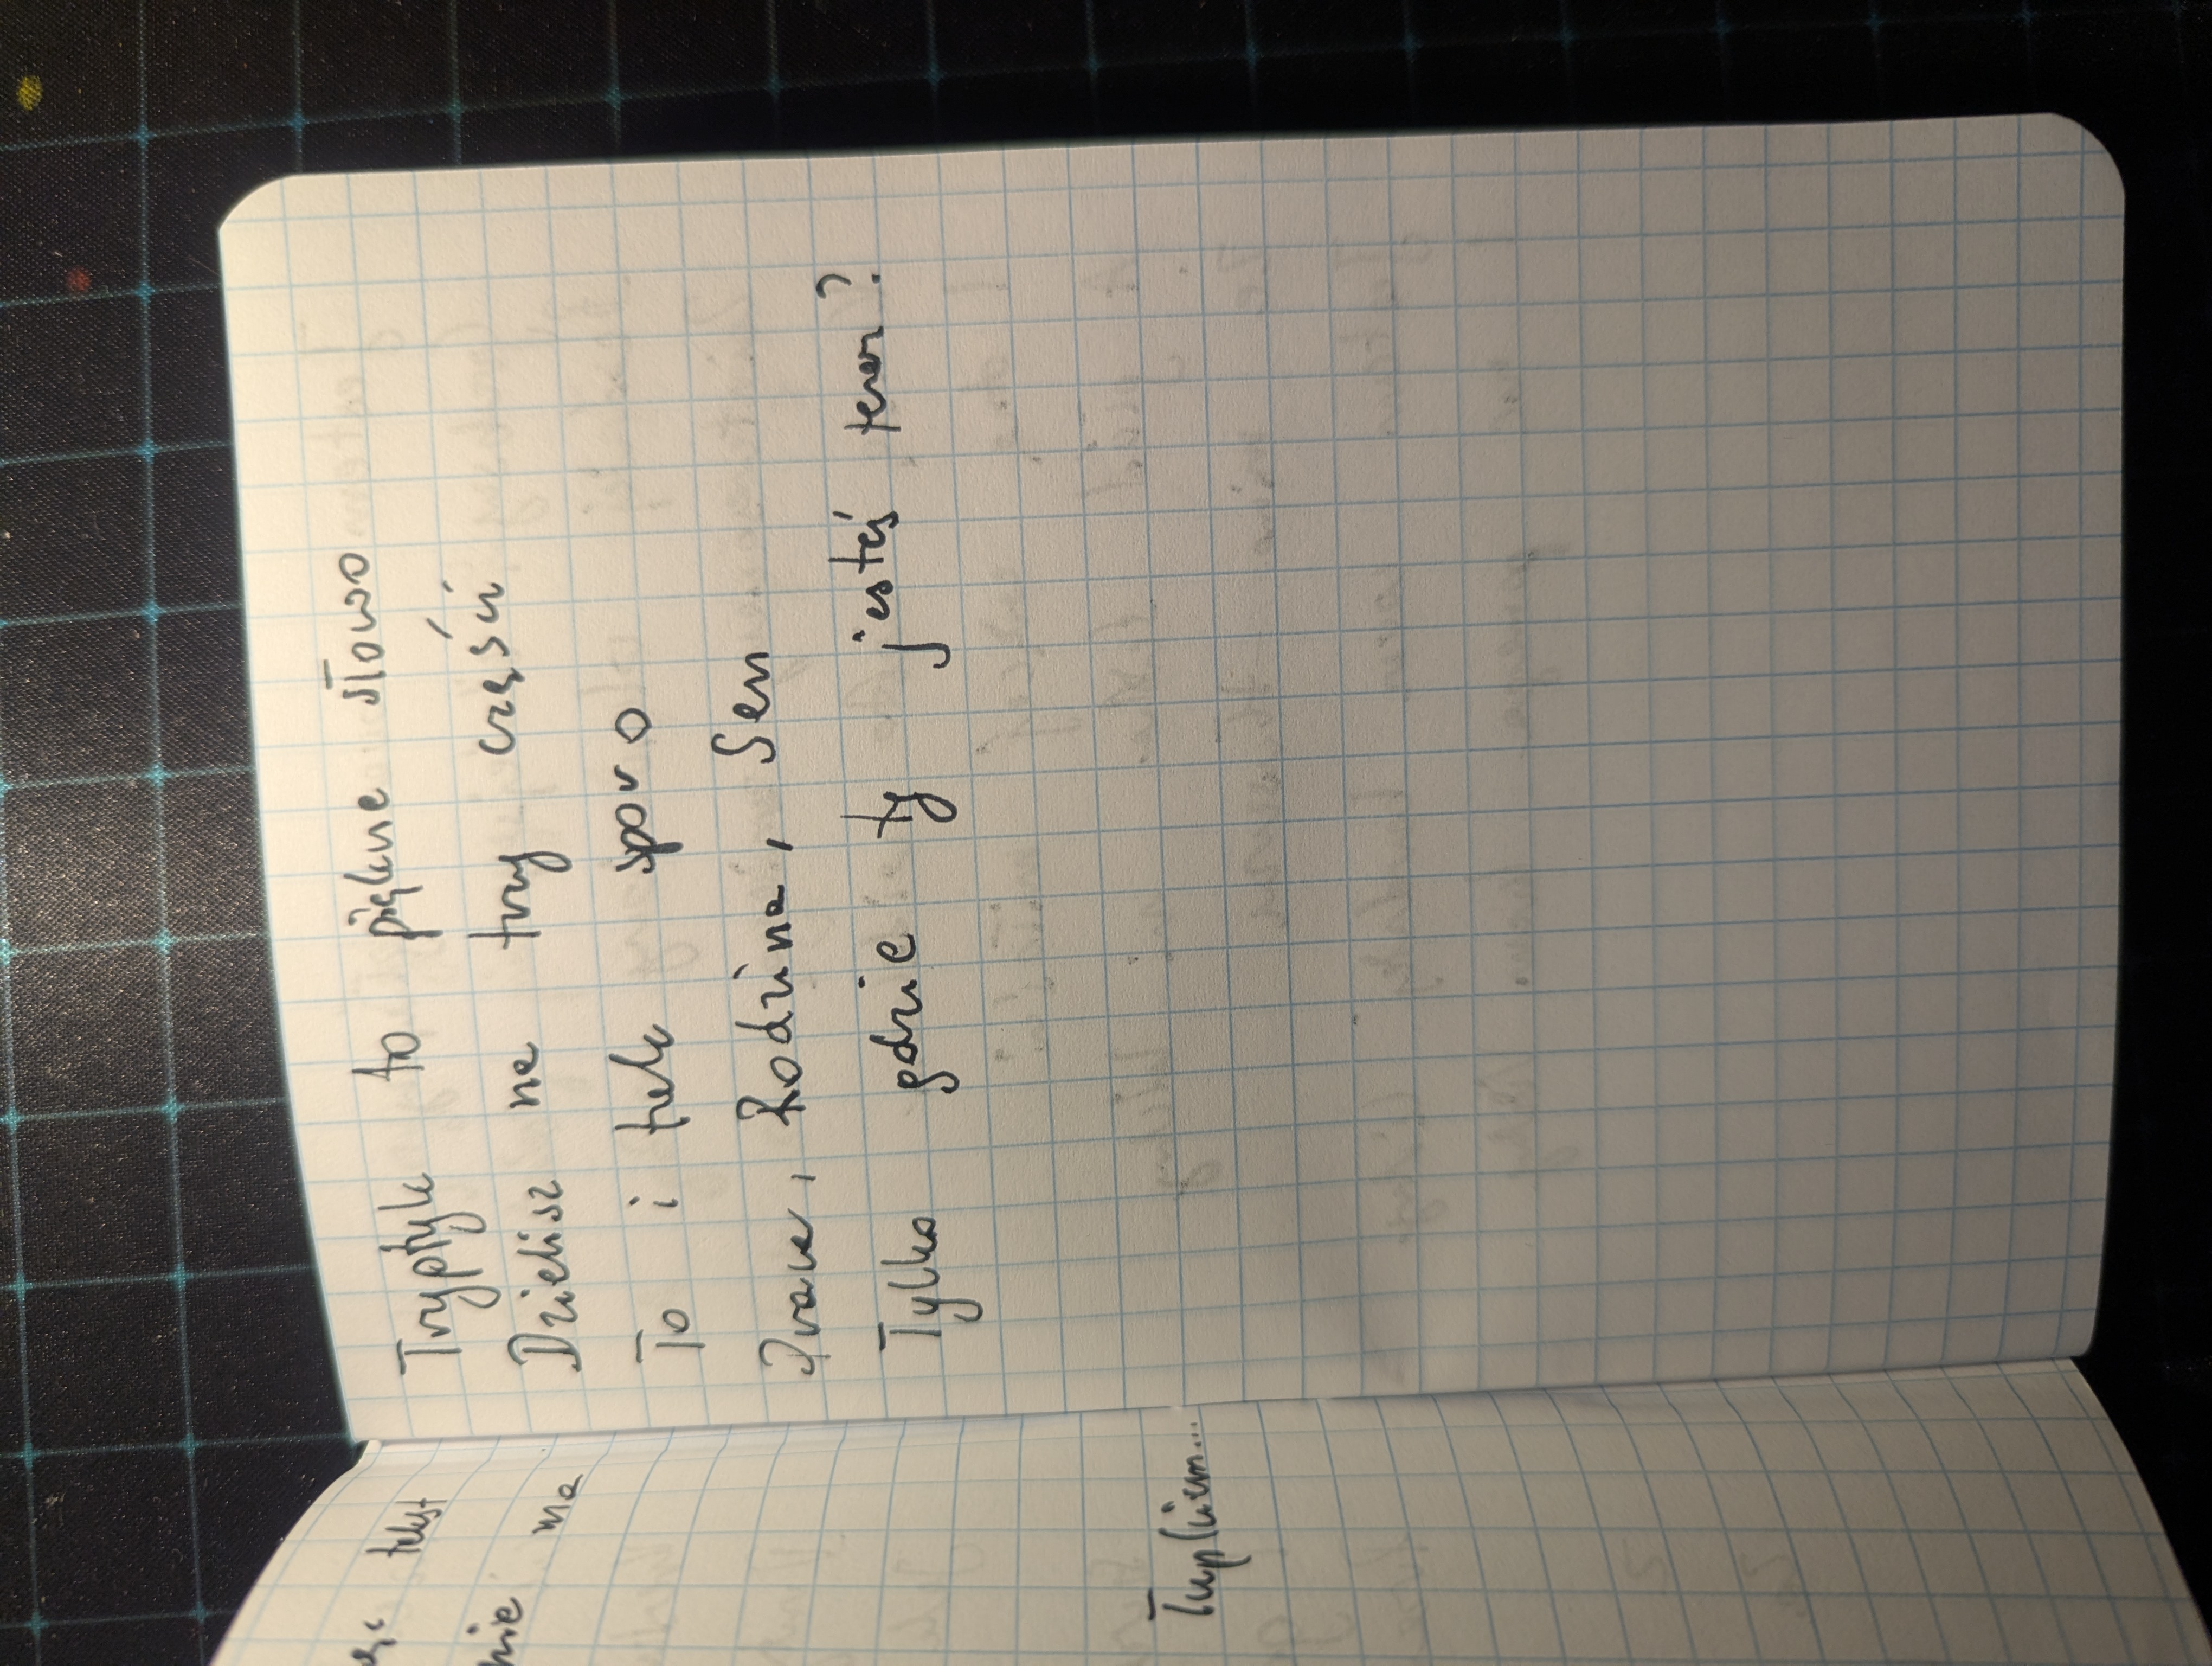 Tryptyk to piękne słowo
Dzielisz na trzy części
To i tak sporo
Praca, Rodzina, Sen
Tylko gdzie ty jesteś teraz?
tekst
nie ma